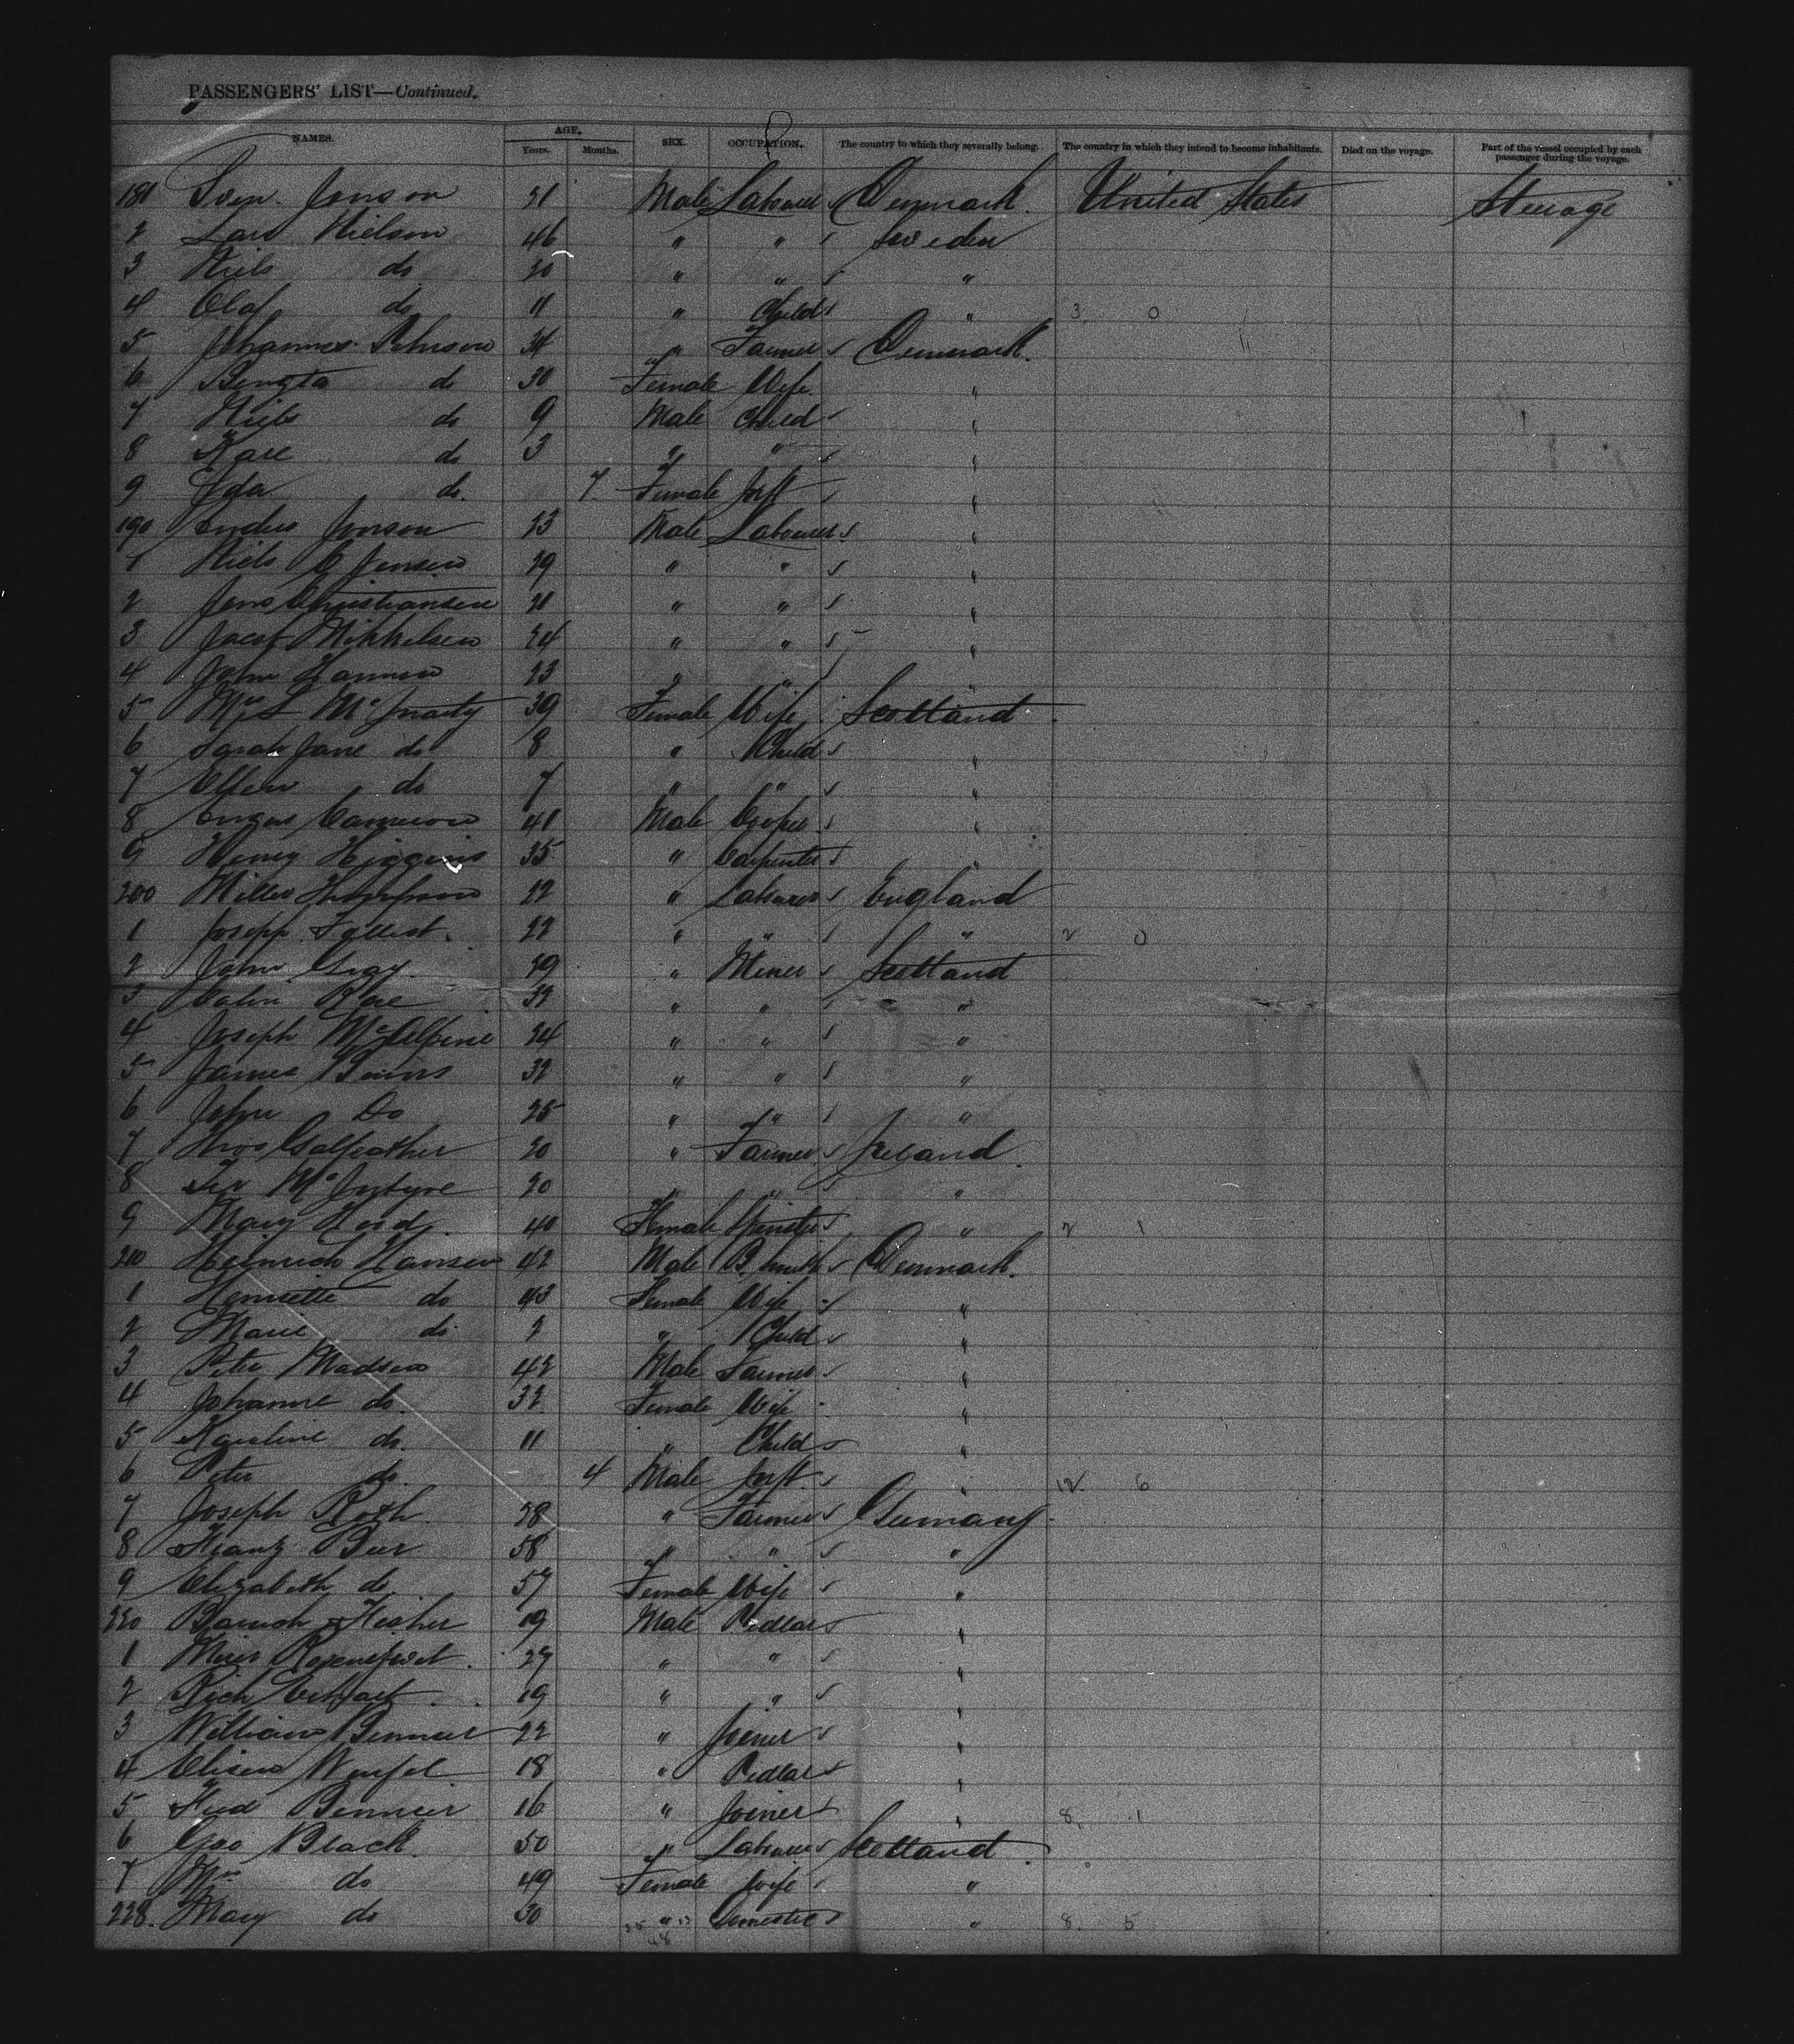 PASSENGERS' LIST—Continued.
NAMES. AGE. Years. Months. SEX. OCCUPATION. The country to which they severally belong. The country in which they intend to become inhabitants. Died on the voyage. Part of the vessel occupied by each passenger during the voyage.
181 Sven Jonson 21 Male Labourer Denmark United States Steerage
2 Lars Nielson 46 " " Sweden
3 Niels do 20 " " "
4 Olaf do 11 " Child " 3 0
5 Johannes 34 " Farmer Denmark
6 Bengta do 30 Female Wife "
7 Niels do 9 Male Child "
8 Kare do 3 " " "
9 Ida do. 7 Female Inft "
190 Anders Jonson 23 Male Labourer "
1 Niels C Jensen 29 " " "
2 Jens Christiansen 21 " " "
3 Jacob Mikkelsen 24 " " "
4 John 23 " "
5 Mrs L 39 Female Wife Scotland
6 Sarah Jane do 8 " Child "
7 Ellen do 7 " " "
8 Angus Cameron 41 Male Cooper "
9 Henry Higgins 35 " Carpenter "
200 Thompson 22 " Labourer England
1 Joseph 22 " " " 2 0
2 John Gray 29 " Miner Scotland
3 Rae 32 " " "
4 Joseph McAlpine 24 " " "
5 James Binns 32 " " "
6 John Do 25 " " "
7 Thos 20 " Farmer Ireland
8 McIntyre 20 " " "
9 Mary 40 Female Spinster " 2 1
210 Heinrich Hansen 42 Male B. Smith Denmark
1 Henriette do 43 Female Wife "
2 Marie do 2 " Child "
3 Peter Madsen 42 Male Farmer "
4 Johanne do 32 Female Wife "
5 Karoline do. 11 " Child "
6 Peter do. 4 Male Inft " 12 6
7 Joseph Roth 28 " Farmer Germany
8 Franz 58 " " "
9 Elizabeth do. 57 Female Wife "
220 19 Male Pedlar "
1 27 " " "
2 19 " " "
3 William 22 " Joiner "
4 18 " Pedlar "
5 Fred 16 " Joiner " 8 1
6 Geo Black. 50 " Labourer Scotland
7 Mrs do 49 Female Wife "
228. Mary do 30 " Domestic " 8. 5
48